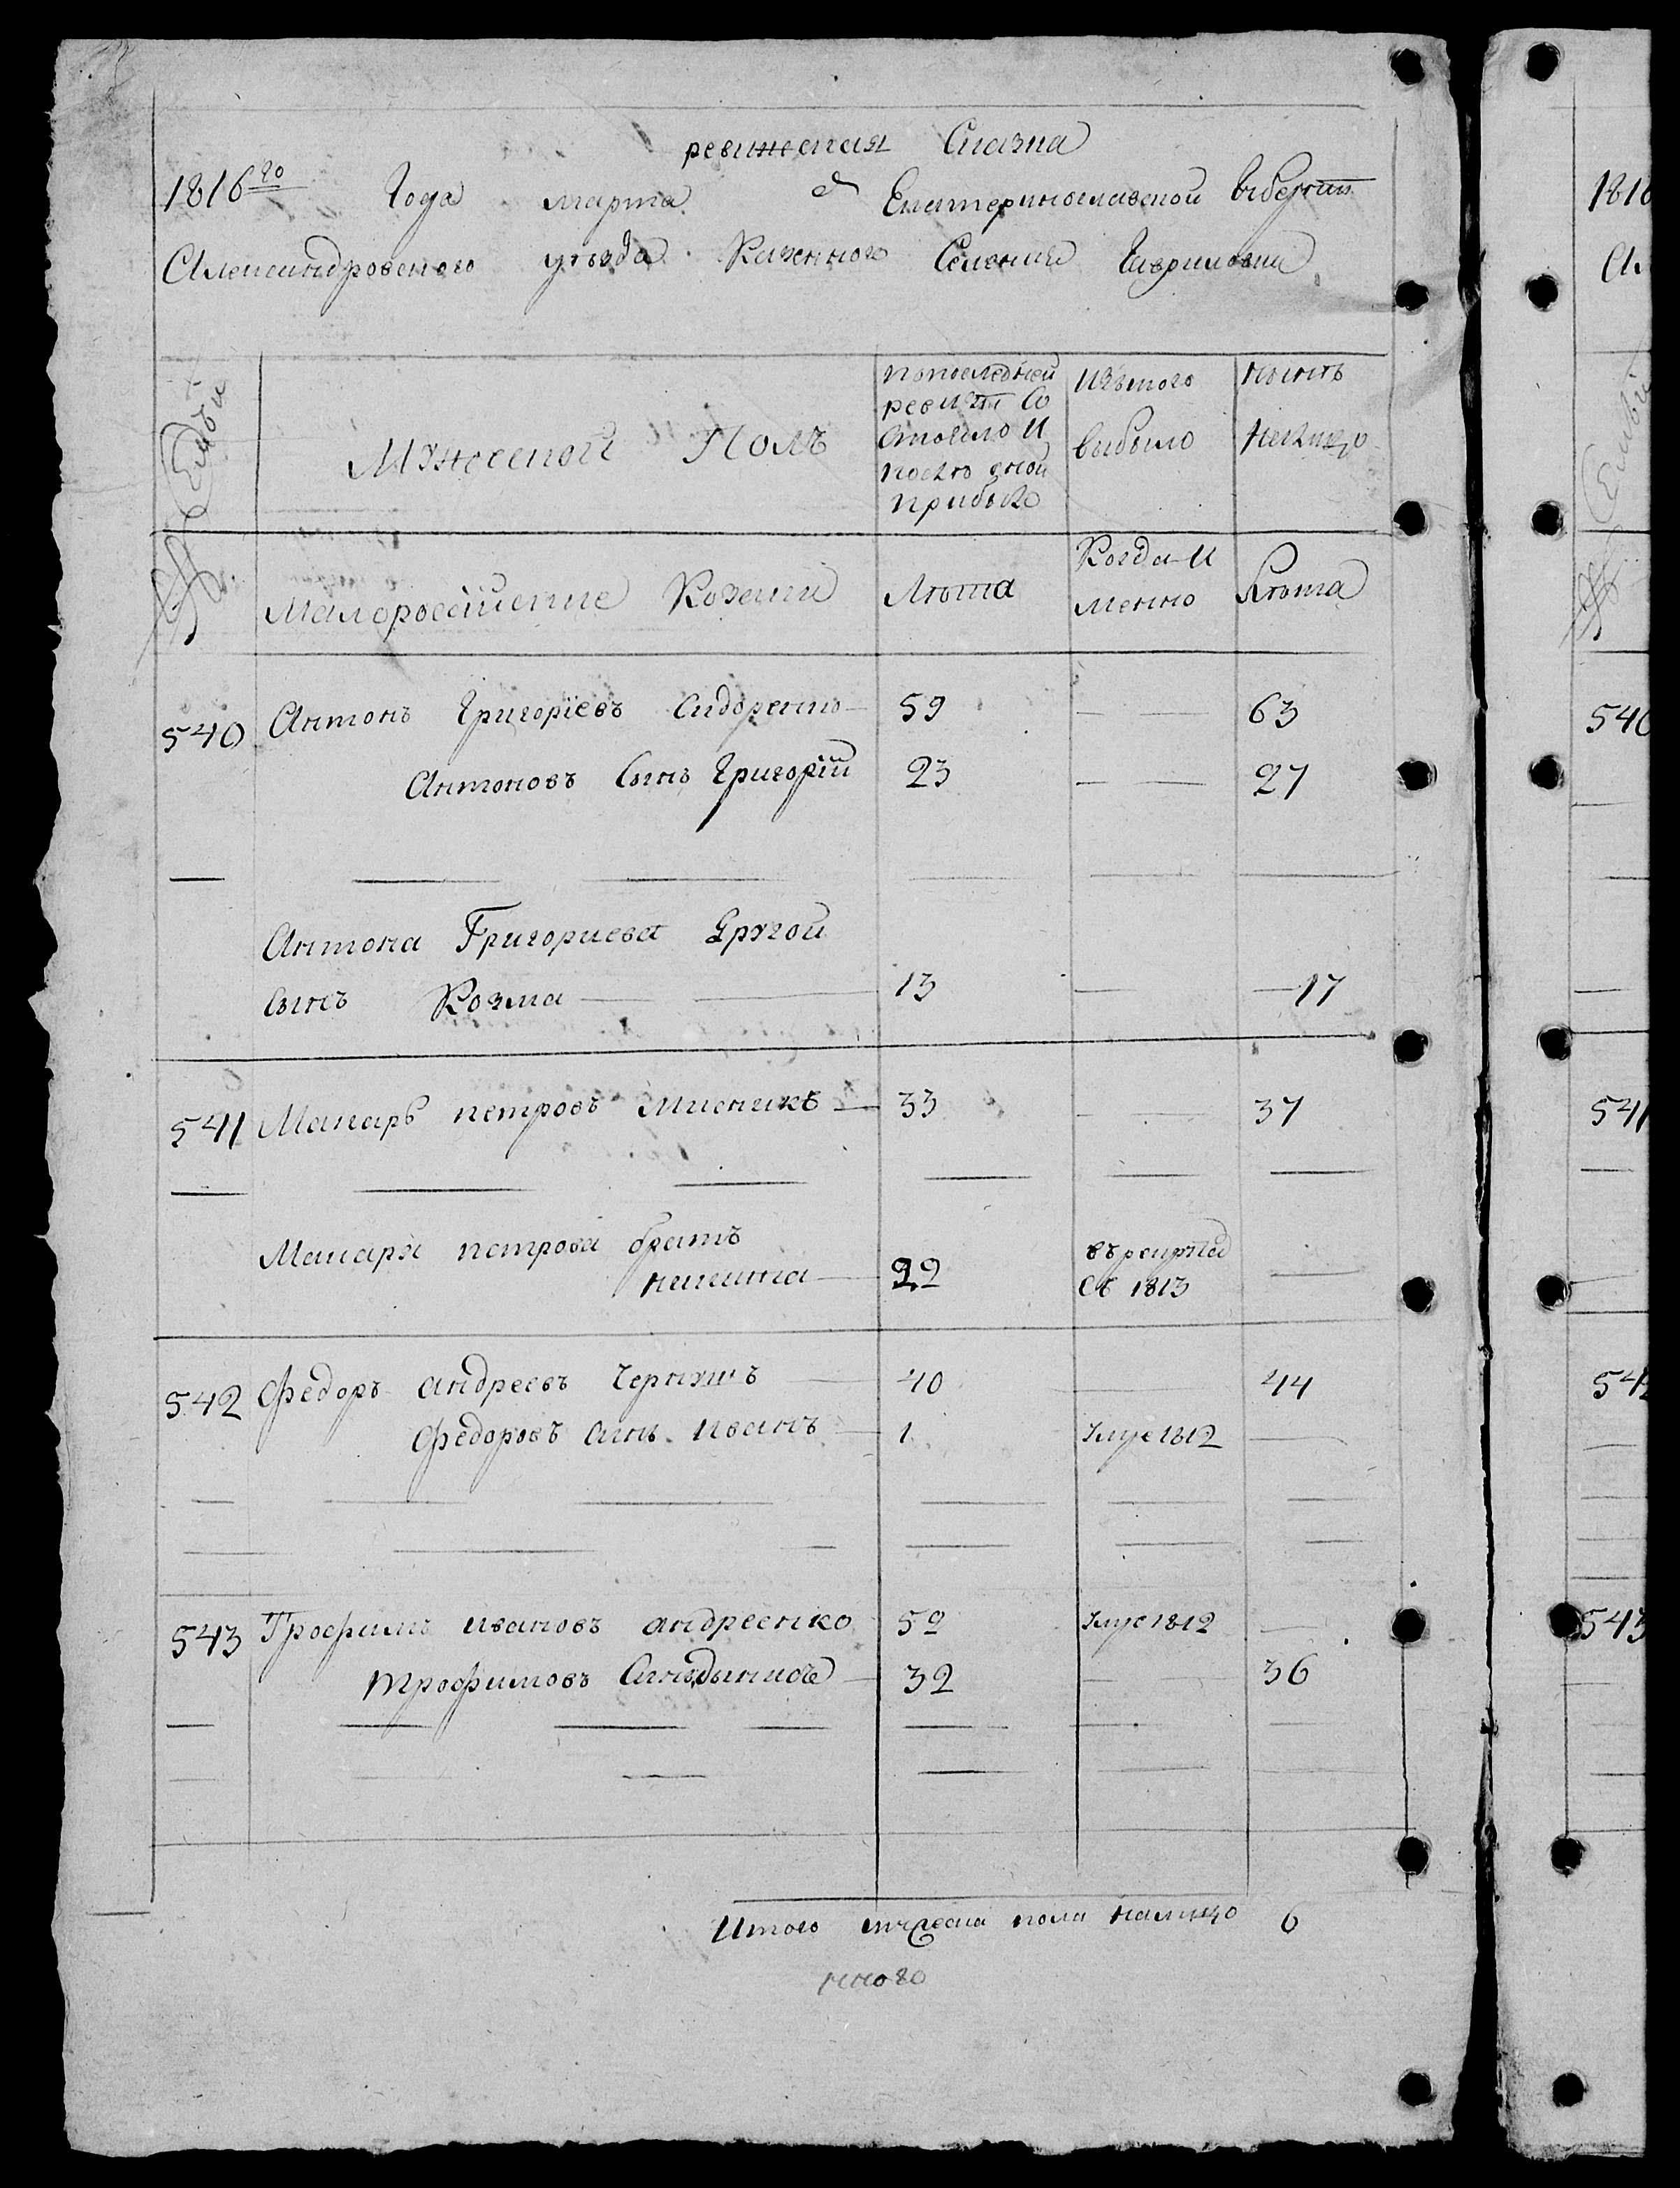 ревижская Сказка
1816го Года марта Екатеринославской Губерніи
Александровского уѣзда Казенного Селения Гавриловки
Семьи
Мужеской Полъ
попоследней
ревизіи Со
стояло И
после оной
прибыло
Изътого
выбыло
ныне
Налицо
№
Малороссійские Козаки
Лѣта
Когда И
менно
Лѣта
540 Антонъ Григоріевъ Сидоренко 59 — — 63
Антоновъ Сынъ Григорій 23 — — 27
Антона Григориева Другой
сынъ Козма — — 13 — — 17
541 Макаръ петровъ Мисникъ — 33 — 37
Макара петрова братъ
никита — 22 въ рекрутах
съ 1813 —
542 Федоръ андреевъ Чернухъ — 40 — 44
Федоровъ сынъ иванъ — 1 1812 —
543 Трофимъ ивановъ андреенко 59 1812 —
трофимовъ Сынъ — 32 — 36
Итого мужеска пола налицо 6